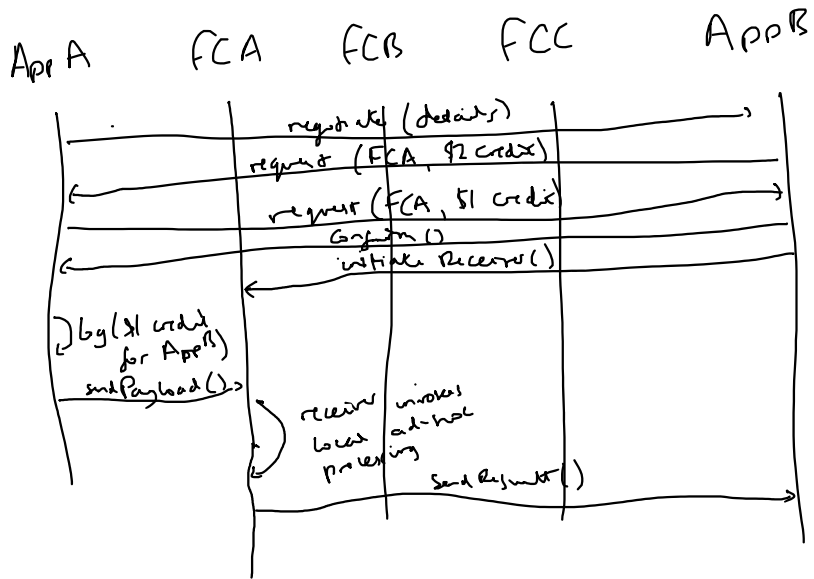 AppA FCA FCB FCC AppB
negotiate (details)
request (FCA, $2 credit)
request (FCA, $1 credit)
confirm ()
initiate Receiver()
log($1 credit
for AppB)
sendPayload()
receiver invokes
local ad-hoc
processing
sendResult()